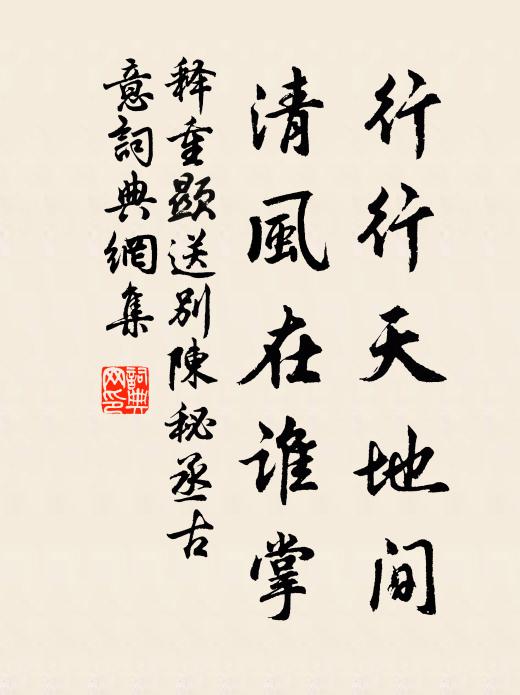 行行天地间
清風在谁掌
释重顯送別陳秘丞古
意詞典網集
詞典网印